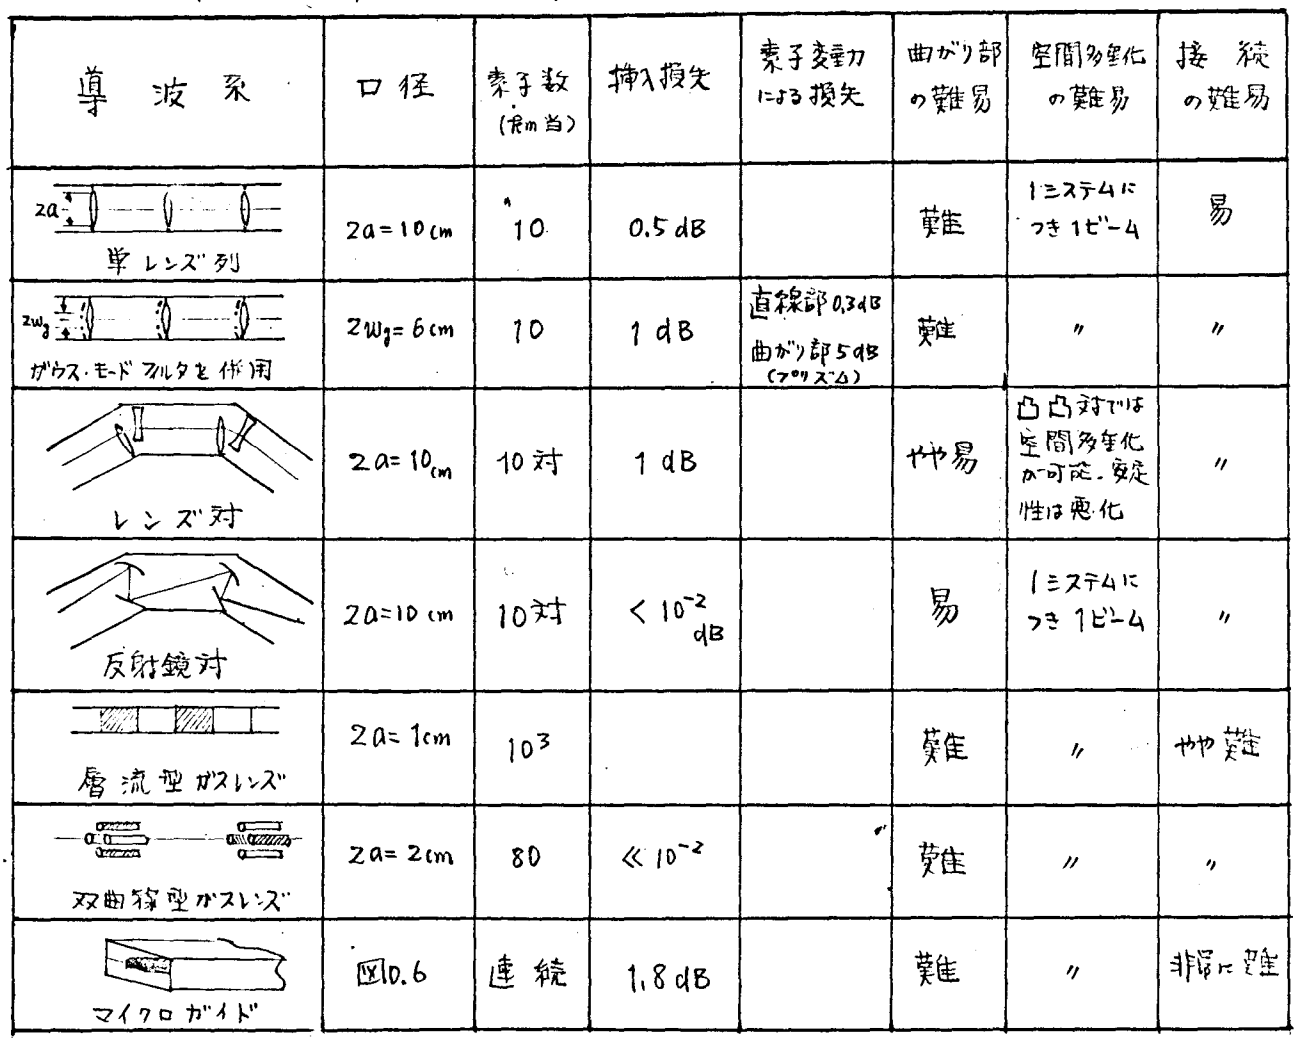 導波系
口径
素子数
(km当)
挿入損失
素子変動
による損失
曲がり部
の難易
空間多重化
の難易
接続
の難易
2a
単レンズ列
2a=10cm
10
0.5dB
難
1システムに
つき1ビーム
易
2wg
ガウス・モードフィルタを併用
2wg=6cm
10
1dB
直線部0.3dB
曲がり部5dB
(プリズム)
難
〃
〃
レンズ対
2a=10cm
10対
1dB
やや易
凸凸対では
空間多重化
が可能.安定
性は悪化
〃
反射鏡対
2a=10cm
10対
<10⁻²
dB
易
1システムに
つき1ビーム
〃
層流型ガスレンズ
2a=1cm
10³
難
〃
やや難
双曲線型ガスレンズ
2a=2cm
80
≪10⁻²
難
〃
〃
マイクロガイド
図0.6
連続
1.8dB
難
〃
非常に難